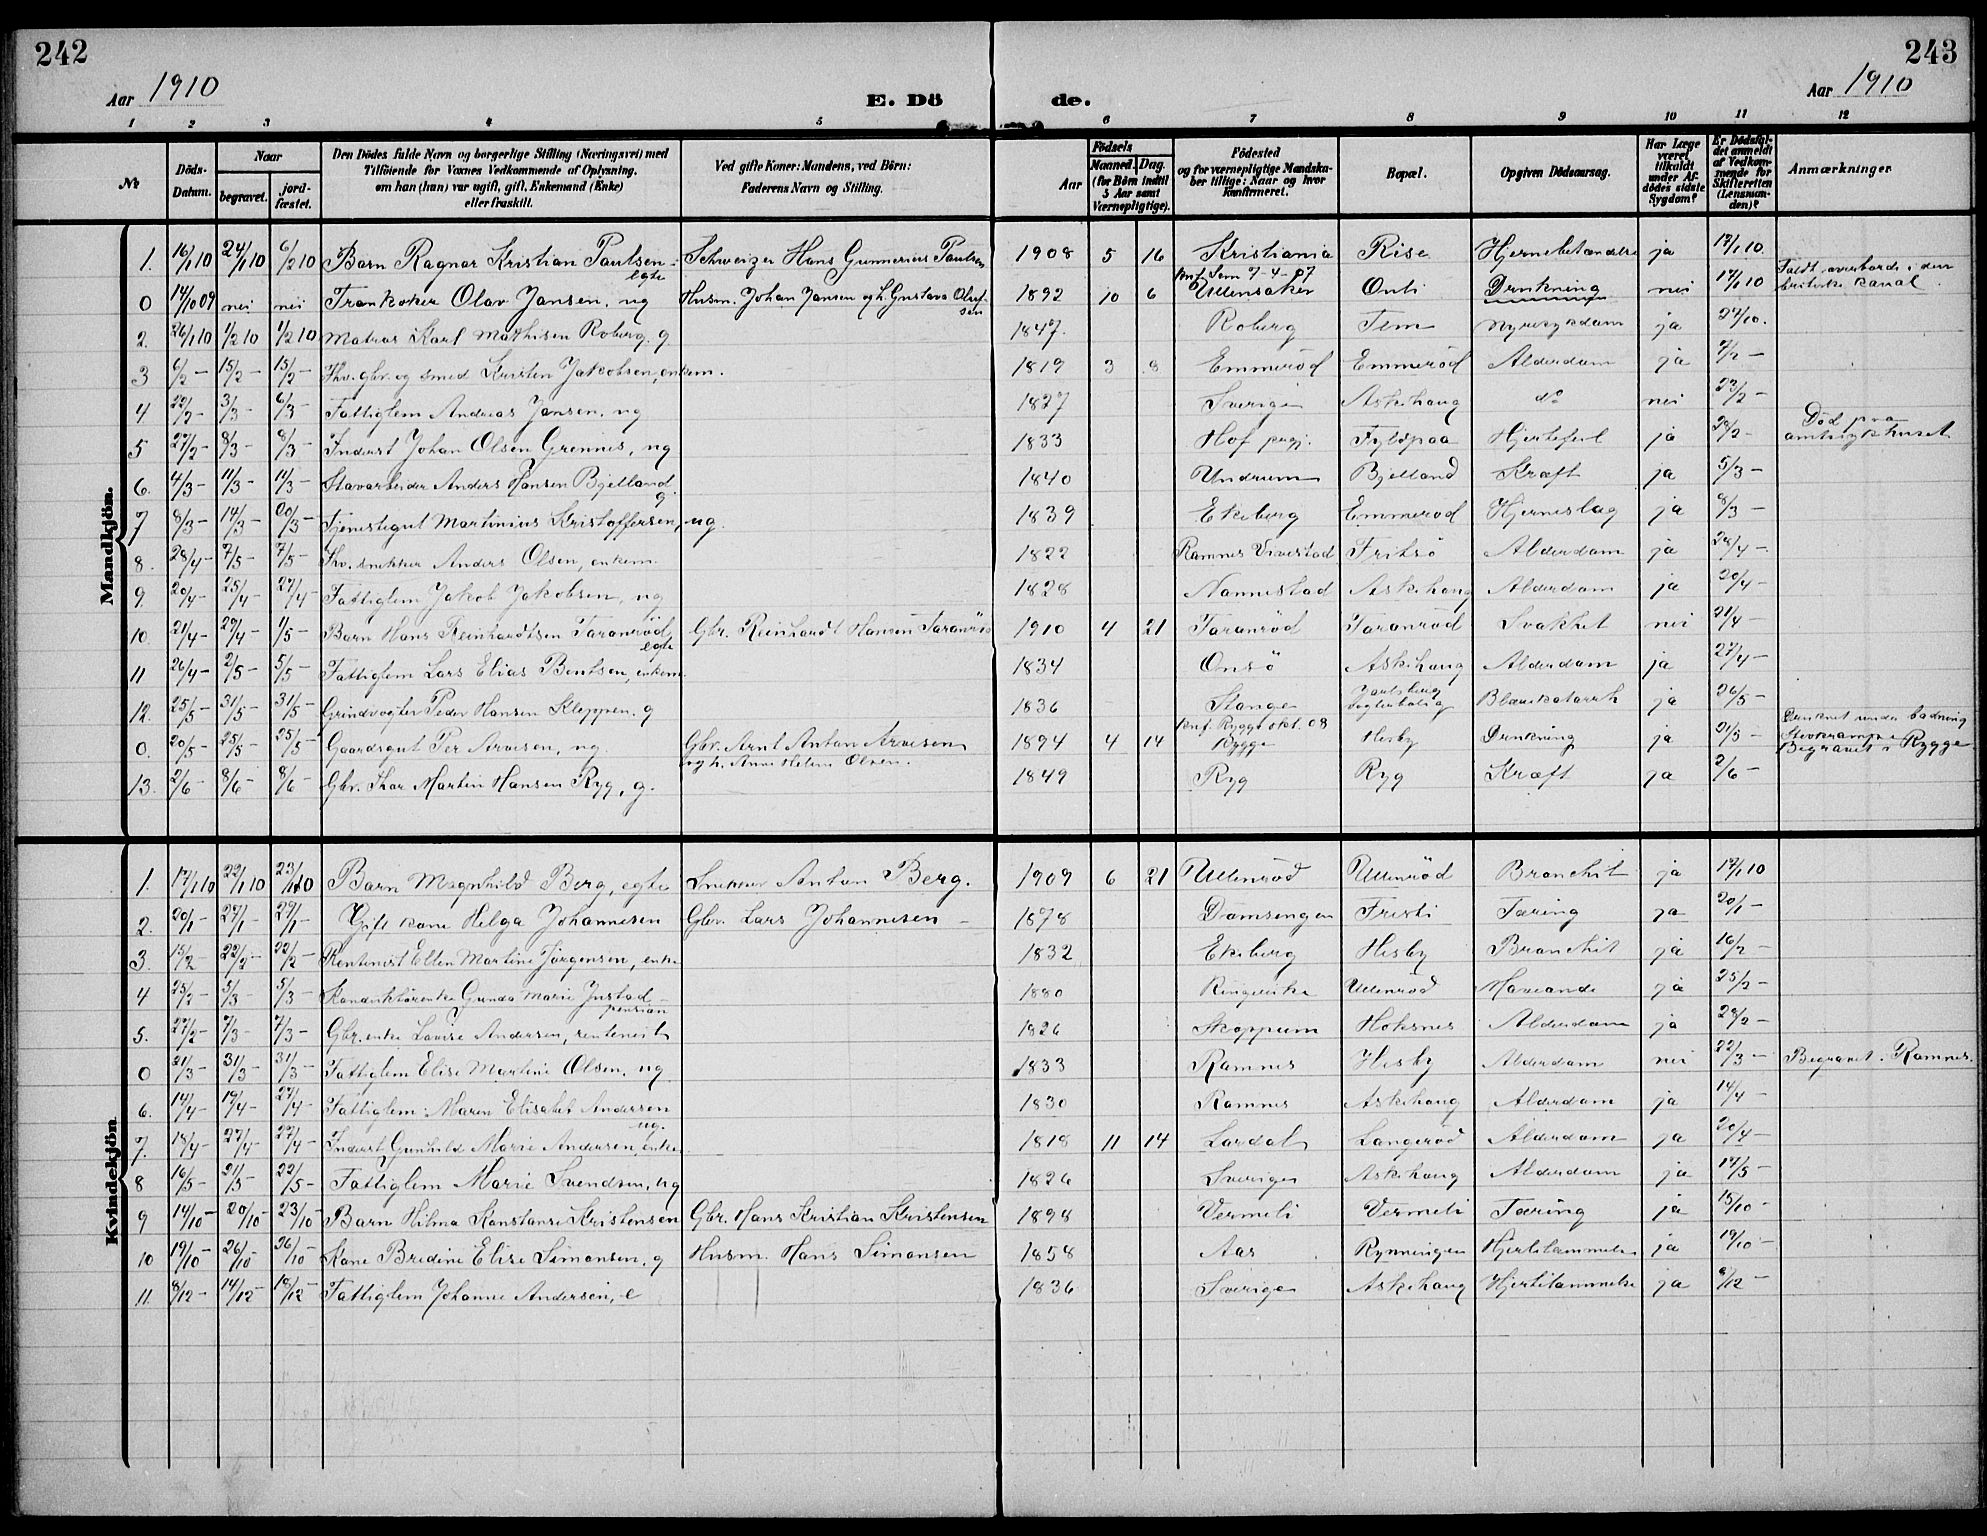 242
243
Aar 1910
E. Dö
de.
Aar 1910
1 2 3 4 5 6 7 8 9 10 11 12
№
Döds-Datum.
Naar
begravet.
jord-fæstet.
Den Dödes fulde Navn og borgerlige Stilling (Næringsvei) med
Tilföiende for Voxnes Vedkommende af Oplysning,
om han (hun) var ugift, gift, Enkemand (Enke)
eller fraskilt.
Ved gifte Koner: Mandens, ved Börn:
Faderens Navn og Stilling.
Födsels
Aar
Maaned. Dag.
(for Börn indtil
5 Aar samt
Værnepligtige).
Födested
og for værnepligtige Mandska-
ber tillige: Naar og hvor
konfirmeret.
Bopæl.
Opgiven Dödsaarsag.
Har Læge
været
tilkaldt
under Af-
dödes sidste
Sygdom?
Er Dödsfal-
det anmeldt
af Vedkom-
mende for
Skifteretten
(Lensman-
den)?
Anmærkninger
Mandkjön.
1. 16/1 10 24/1 10 6/2 10 Barn Ragnar Kristian Paulsen - egte Schweizer Hans Gunnerius Paulsen 1908 5 16 Kristiania Rise Hjernebetændelse ja 17/1 10
0 14/10 09 nei nei Frankoker Olav Jansen, ug Husm. Johan Jansen og h. Gustava Olufsen 1892 10 6 knf. Sem 7-4-07 Ullensaker Onli Drukning nei 17/1 10 Faldt overbord i den britiske kanal.
2. 26/1 10 1/2 10 1/2 10 Matros Karl Mathisen Roberg. g 1847. Roberg Fem Nyresykdom ja 27/10.
3 6/2 - 15/2 - 15/2 - Fhv. gbr. og smed Kristen Jakobsen, enkem. 1819 3 8 Emmerød Emmerød Alderdom ja 7/2 -
4 22/2 - 3/3 - 6/3 - Fattiglem Andreas Jansen, ug 1827 Sverige Askehaug do nei 23/2 -
5 27/2 - 8/3 - 8/3 - Inderst Johan Olsen Grennes, ug 1833 Hof prgj. Fyldpaa Hjertefeil ja 28/2 - Død paa amtsykehuset
6. 4/3 - 11/3 - 11/3 - Stavarbeider Anders Hansen Bjelland g. 1840 Undrum Bjelland Kræft ja 5/3 -
7 8/3 - 14/3 - 20/3 - Tjenestegut Martinius Kristoffersen, ug. 1839 Ekeberg Emmerød Hjerneslag ja 8/3 -
8. 28/4 - 7/5 - 7/5 - Fhv. snekker Anders Olsen, enkem. 1822 Ramnes Vivestad Fritsø Alderdom ja 28/4 -
9. 20/4 - 25/4 - 27/4 - Fattiglem Jakob Jakobsen, ug 1828 Nannestad Askehaug Alderdom ja 20/4 -
10. 21/4 - 29/4 - 1/5 - Barn Hans Reinhardtsen Taranrød, egte Gbr. Reinhardt Hansen Taranrød 1910 4 21 Taranrød Taranrød Svakhet nei 21/4 -
11 26/4 - 2/5 - 5/5 - Fattiglem Lars Elias Bentsen, enkem. 1834 Onsø Askehaug Alderdom ja 27/4 -
12. 25/5 - 31/5 - 31/5 - Grindvogter Peder Hansen Kleppen. g 1836 Stange Jarlsberg vogterbolig Blærekatarrh ja 26/5 -
0. 20/5 - 25/5 - 25/5 - Gaardsgut Per Arvesen, ug. Gbr. Arnt Anton Arvesen og h. Anne Helene Olsen. 1894 4 14 knf. Rygge okt. 08 Rygge Hesby Drukning ja 21/5 - Druknet under badning Stivkrampe Begravet i Rygge
13. 2/6 - 8/6 - 8/6 Gbr. Thor Martin Hansen Ryg, g. 1849 Ryg Ryg Kræft ja 2/6 -
Kvindekjön
1. 17/1 10 22/1 10 23/1 10 Barn Magnhild Berg, egte Snekker Anton Berg. 1909 6 21 Ullenrød Ullenrød Bronchit ja 17/1 10
2. 20/1 - 27/1 - 29/1 - Gift kone Helga Johannesen Gbr. Lars Johannesen - 1878 Damsengen Fresti Tæring ja 20/1 -
3. 15/2 - 22/2 - 22/2 - Rentenist Ellen Martine Jørgensen, enke 1832 Ekeberg Hesby Bronchit ja 16/2 -
4 25/2 - 5/3 - 5/3 - Konduktørenke Gunda Marie Justad - pension 1880 Ringerike Ullenrød ja 25/2 -
5. 27/2 - 7/3 - 7/3 - Gbr. enke Lovise Andersen, rentenist 1826 Skoppum Hoksnes Alderdom ja 28/2 -
0 21/3 - 31/3 - 31/3 - Fattiglem Elise Martine Olsen, ug 1833 Ramnes Hesby Alderdom nei 22/3 - Begravet i Ramnes.
6. 14/4 - 19/4 - 27/4 - Fattiglem Maren Elisabet Andersen ug. 1830 Ramnes Askehaug Alderdom ja 14/4 -
7. 18/4 - 27/4 - 27/4 - Inderst Gunhild Marie Andersen, enke. 1818 11 14 Lardal Langerød Alderdom ja 20/4 -
8 16/5 - 21/5 - 22/5 - Fattiglem Marie Svendsen, ug 1826 Sverige Askehaug Alderdom ja 17/5 -
9 14/10 - 20/10 - 23/10 - Barn Hilma Konstanse Kristensen Gbr. Hans Kristian Kristensen 1898 Vermeli Vermeli Tæring ja 15/10 -
10 19/10 - 26/10 - 26/10 - Kone Bredine Elise Simonsen, g Husm. Hans Simonsen 1858 Aas Rynningen Hjertelammelse ja 19/10 -
11. 8/12 - 14/12 - 18/12 - Fattiglem Johanne Andersen, e 1836 Sverige Askehaug Hjertelammelse ja 8/12 -